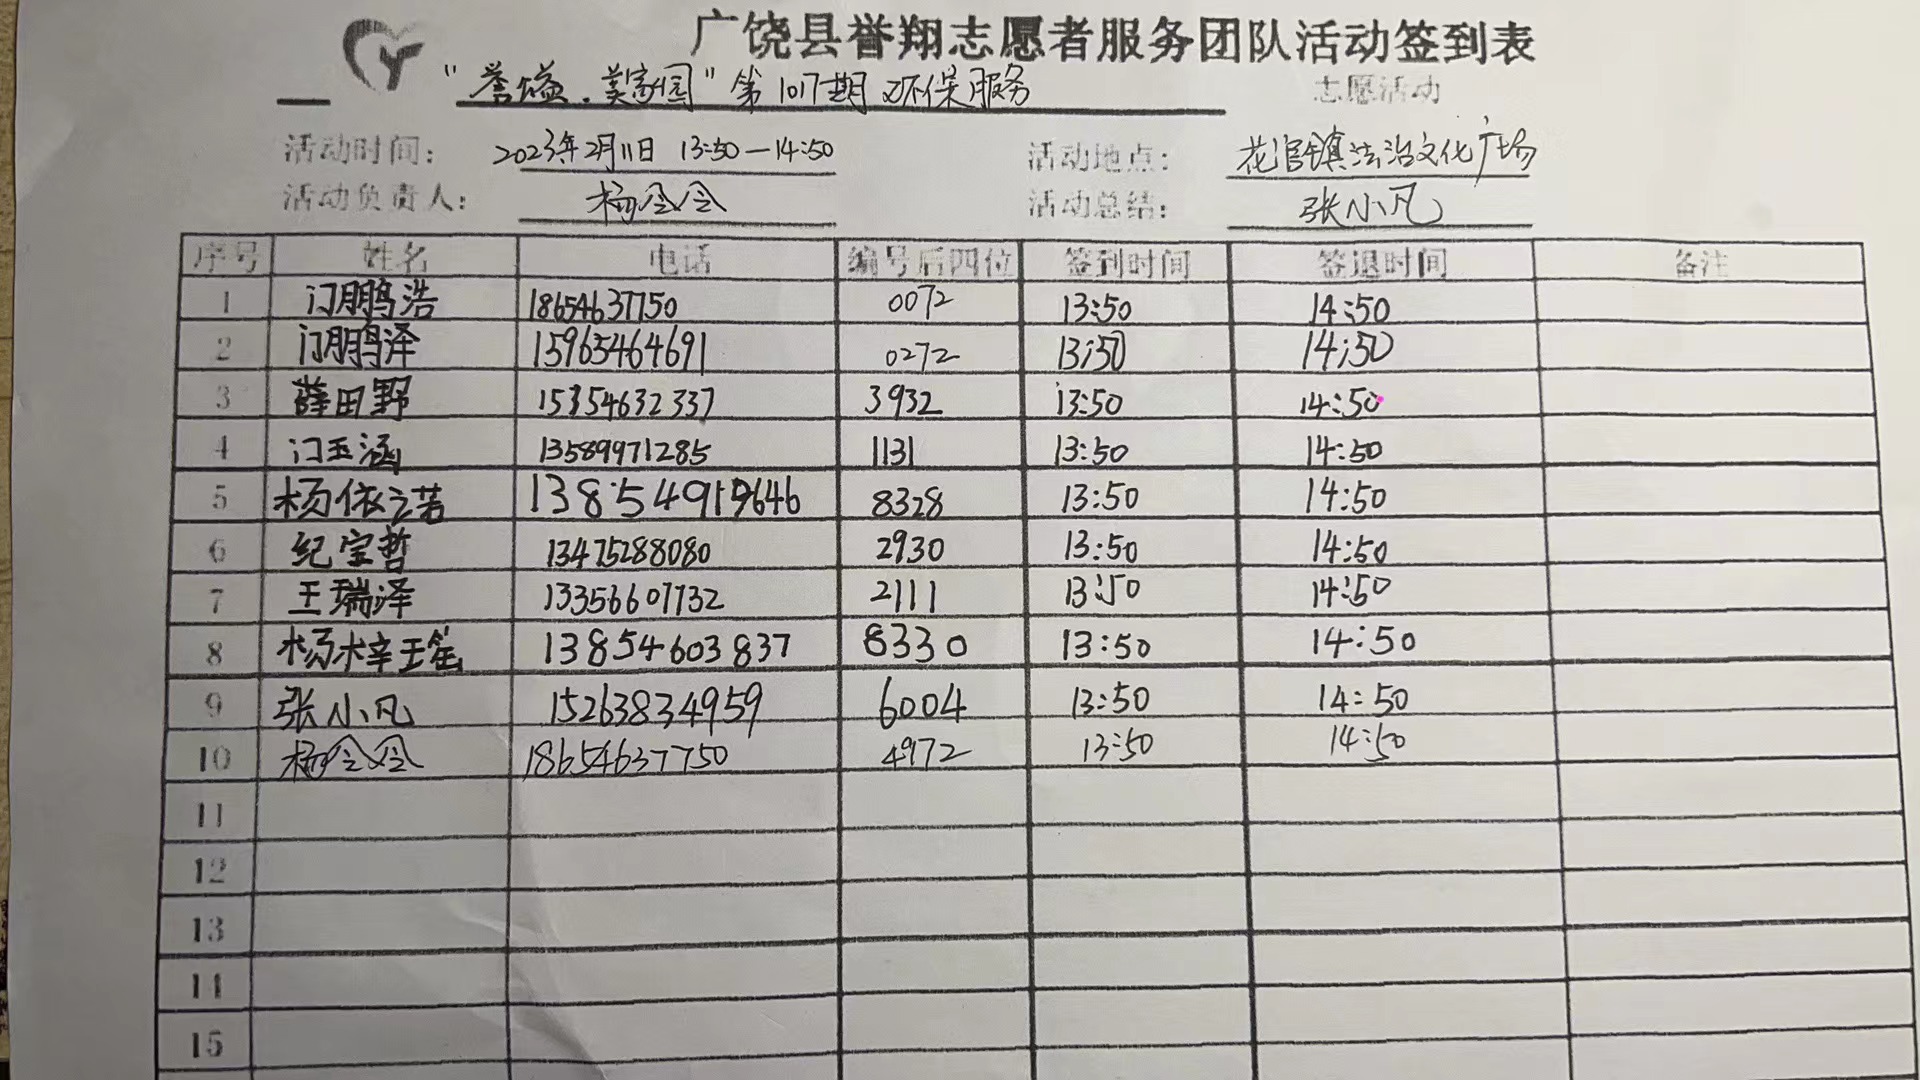 广饶县誉翔志愿者服务团队活动签到表
"誉溢·美家园"第1017期环保服务 志愿活动
活动时间: 2023年2月11日 13:50—14:50 活动地点: 花官镇法治文化广场
活动负责人: 杨令令 活动总结: 张小凡
序号 姓名 电话 编号后四位 签到时间 签退时间 备注
1 门鹏浩 18654637750 0072 13:50 14:50
2 门鹏泽 15965464691 0272 13:50 14:50
3 薛田野 15854632337 3932 13:50 14:50
4 门玉涵 13589971285 1131 13:50 14:50
5 杨依之若 8328 13:50 14:50
6 纪宝哲 13475288080 2930 13:50 14:50
7 王瑞泽 13356607732 2111 13:50 14:50
8 13854603837 8330 13:50 14:50
9 张小凡 15263834959 6004 13:50 14:50
10 杨令令 18654637750 4972 13:50 14:50
11
12
13
14
15